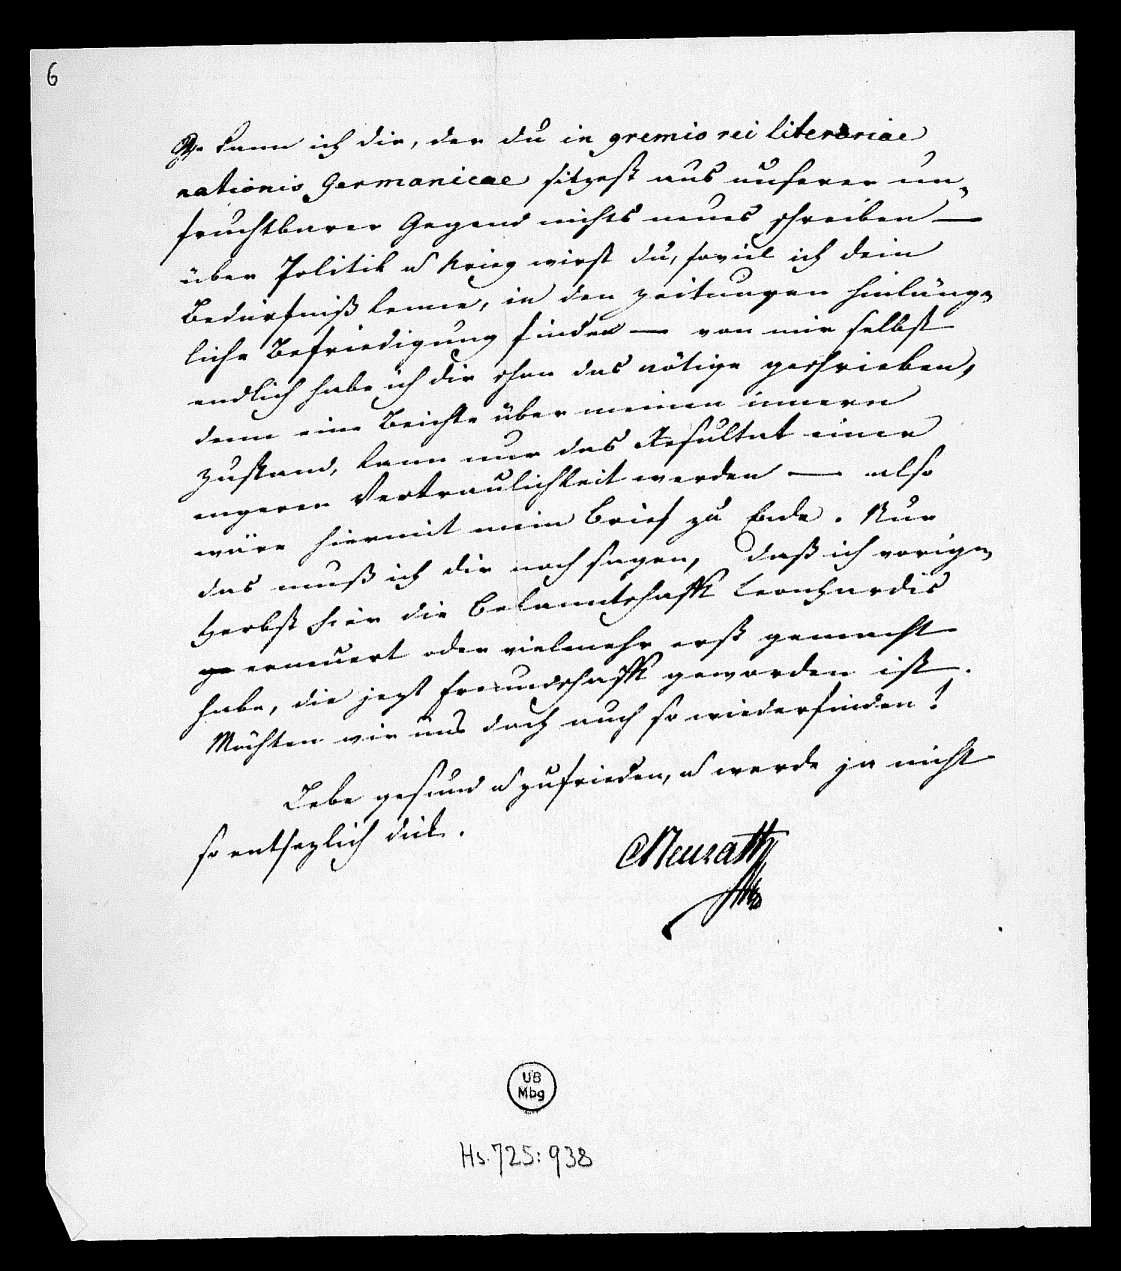 6
kann ich dir, der du in gremio rei literariae
nationis Germanicae sitzest aus unserer un-
fruchtbaren Gegend nichts neues schreiben —
über Politik u Krieg wirst du, soviel ich dein
Bedürfniß kenne, in den zeitungen hinläng-
liche Befriedigung finden — von mir selbst
endlich habe ich dir schon das nötige geschrieben,
denn eine Beichte über meinen innern
zustand, kann nur das Resultat einer
engeren Vertraulichkeit werden — also
wäre hiermit mein Brief zu Ende. Nur
das muß ich dir noch sagen, daß ich vorigen
Herbst hier die Bekanntschafft Leonhardis
erneuert oder vielmehr erst gemacht
habe, die jezt Freundschafft geworden ist.
Möchten wir uns doch auch so wiederfinden!
Lebe gesund u zufrieden, u werde ja nicht
so entsezlich dick.
CNeurath
UB
Mbg
Hs. 725: 938